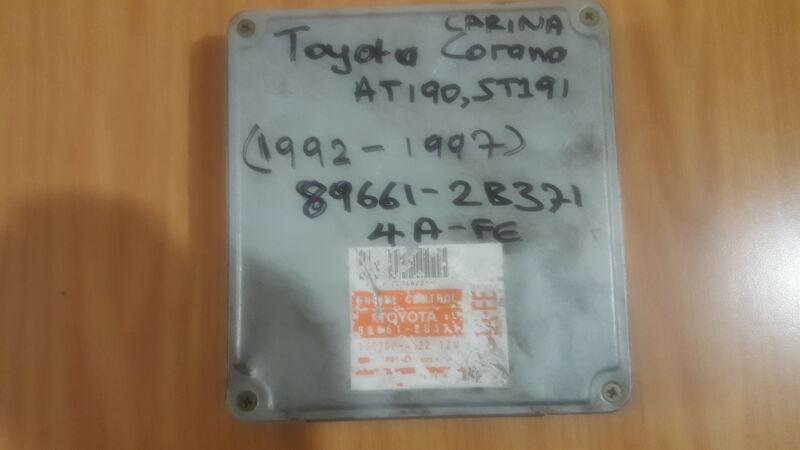 CARINA
Toyota Corona
AT190, ST191
(1992-1997)
89661-2B371
4A-FE
ENGINE CONTROL
TOYOTA
89661-2B371
12V